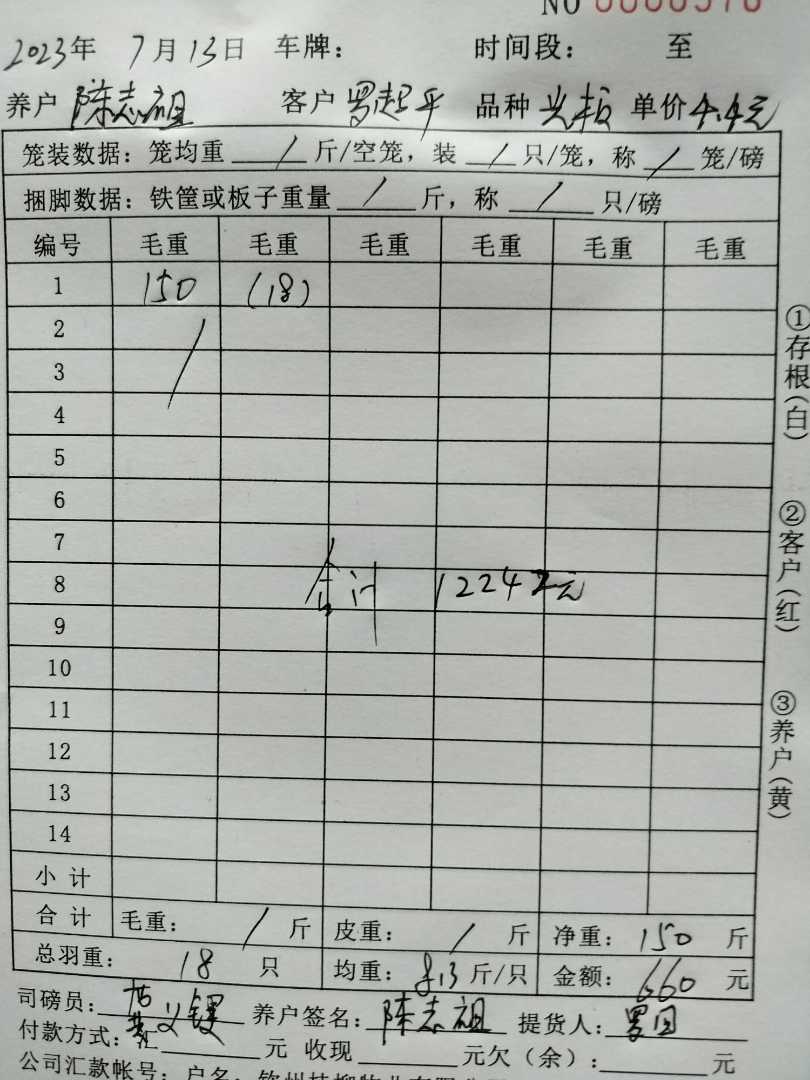 NO 0000570
2023年 7月13日 车牌: 时间段: 至
养户 陈志祖 客户 罗起平 品种 单价 4.4元
笼装数据: 笼均重 / 斤/空笼, 装 / 只/笼, 称 / 笼/磅
捆脚数据: 铁筐或板子重量 / 斤, 称 / 只/磅
编号 毛重 毛重 毛重 毛重 毛重 毛重
1 150 (18)
2
3
4
5
6
7
8 合计 12242元
9
10
11
12
13
14
小计
合计 毛重: / 斤 皮重: / 斤 净重: 150 斤
总羽重: 18 只 均重: 8.13 斤/只 金额: 660 元
司磅员: 养户签名: 陈志祖 提货人: 罗
付款方式: 元 收现 元欠(余): 元
公司汇款帐号: 户名: 钦州桂柳牧业有限公司
①存根(白)
②客户(红)
③养户(黄)